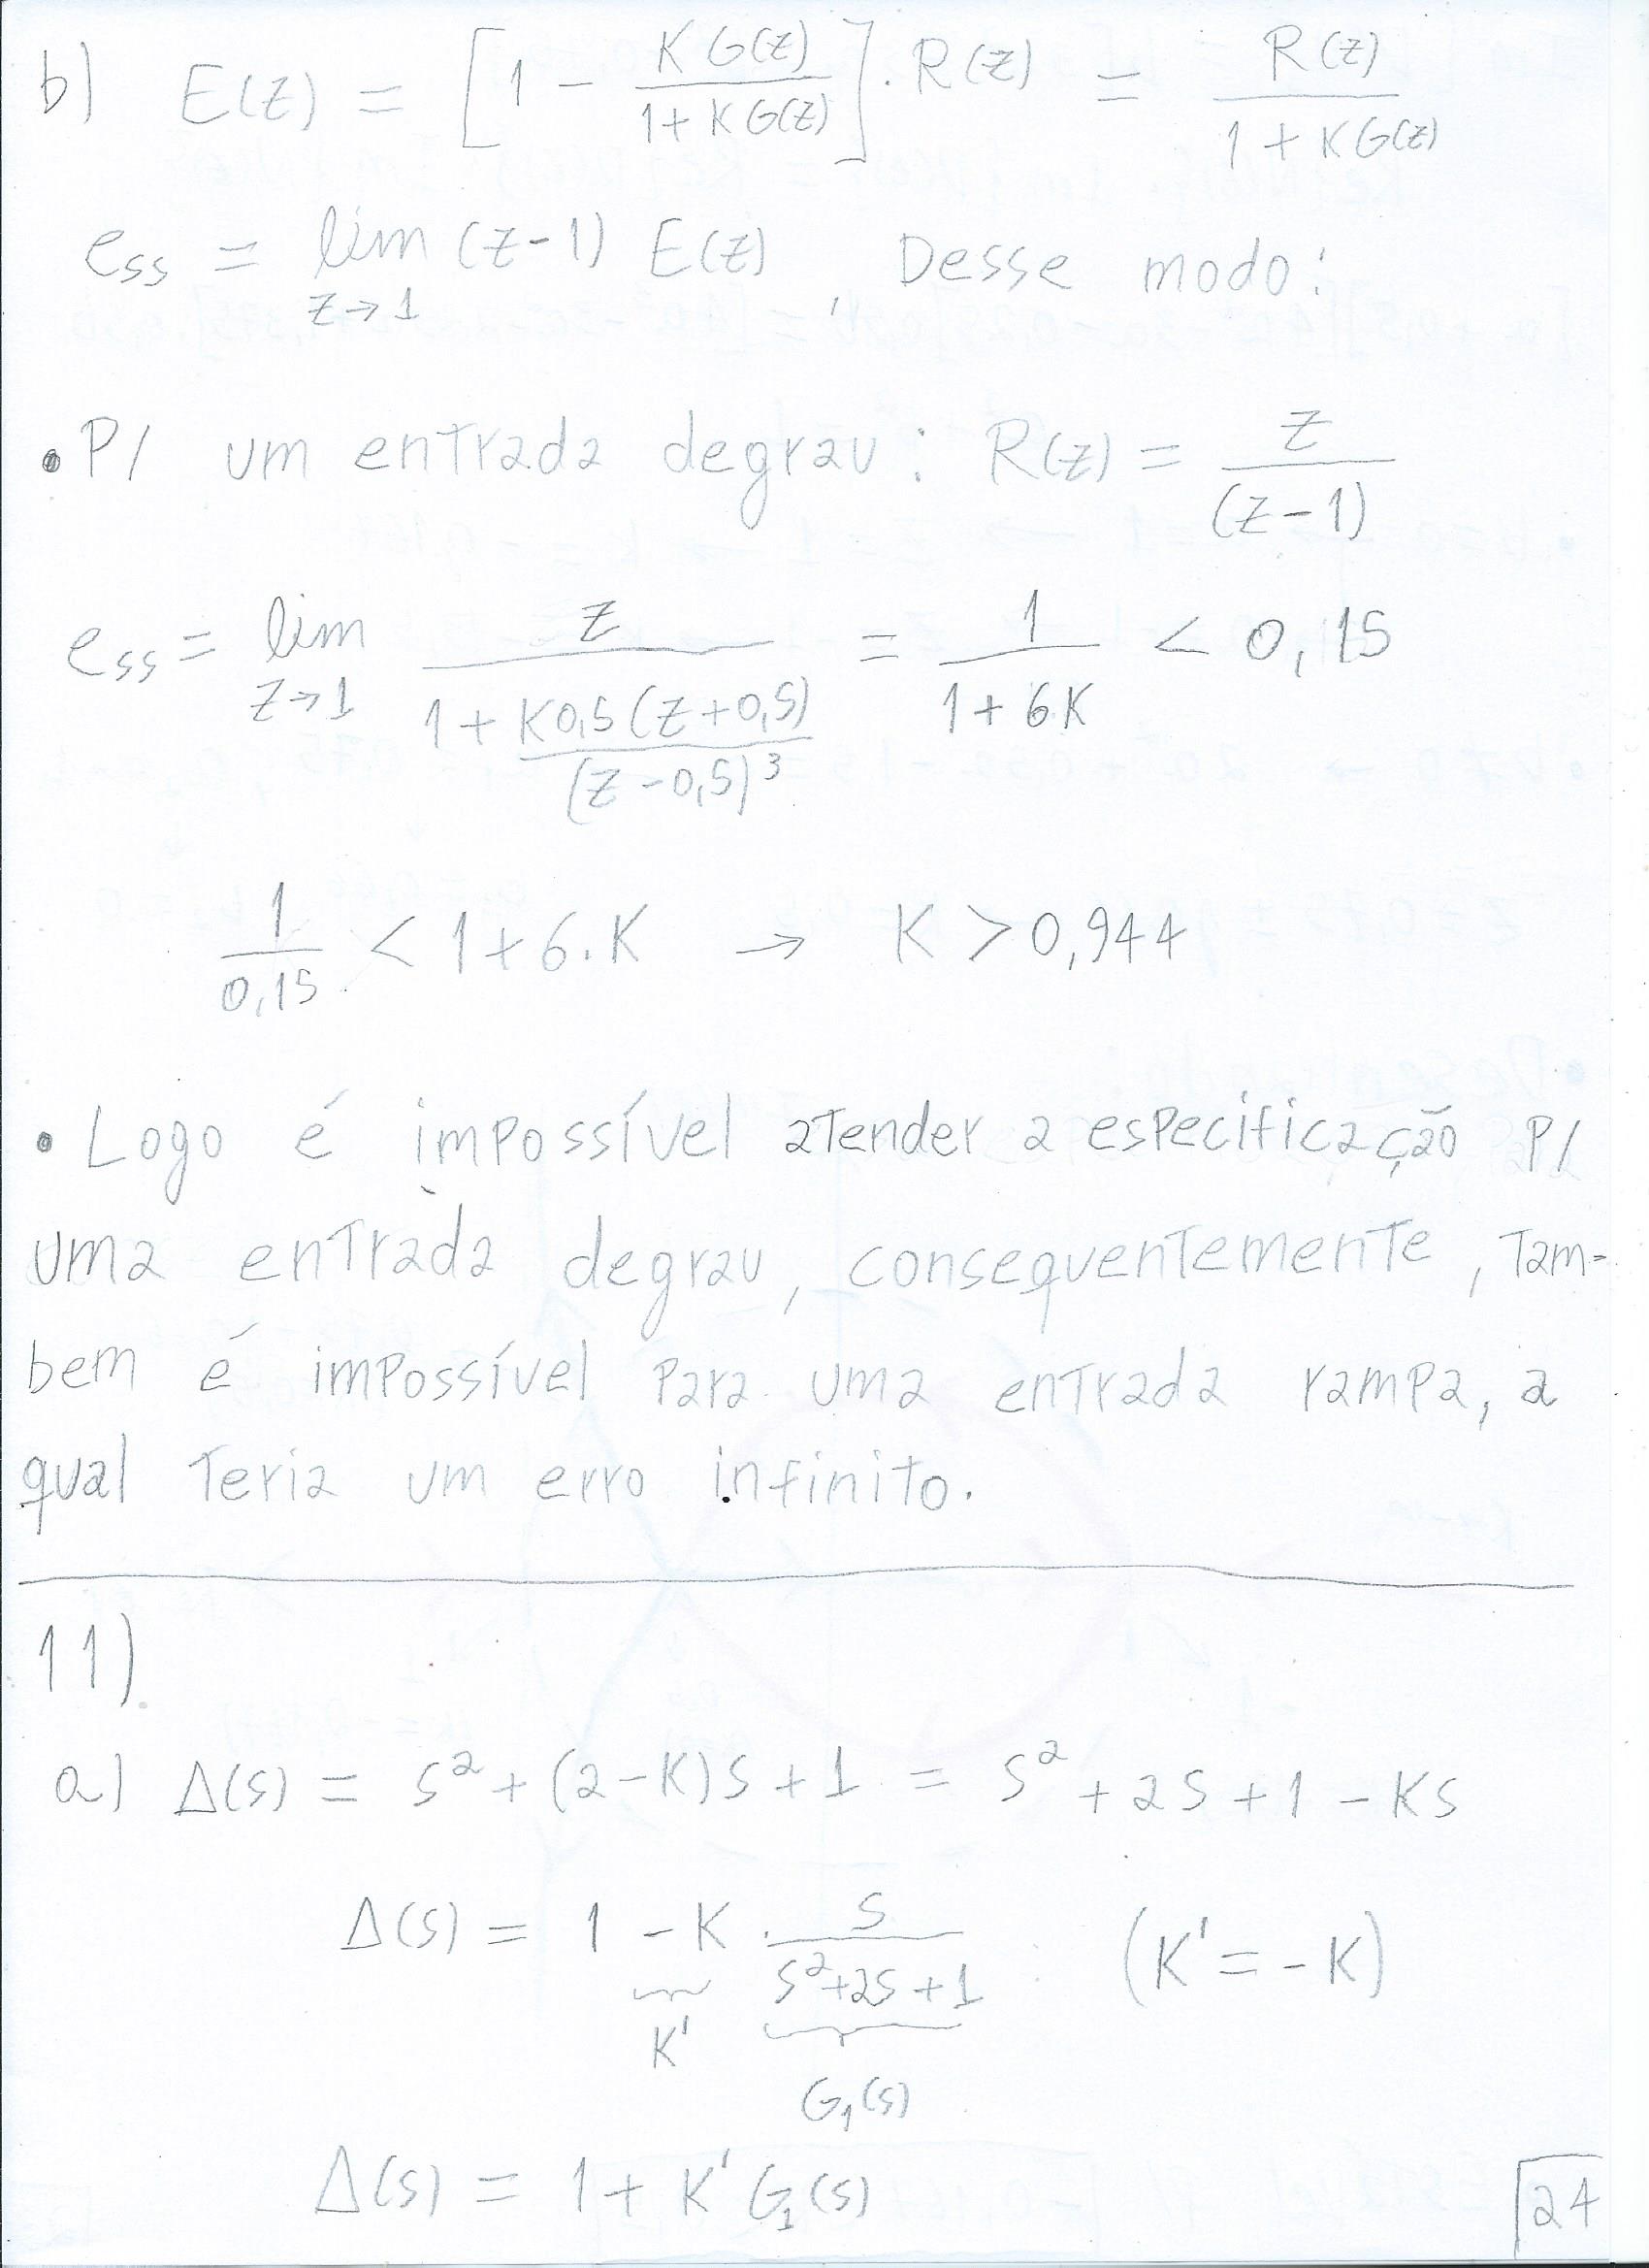 b) E(z) = [1 - K G(z) / 1 + K G(z)] . R(z) = R(z) / 1 + K G(z)
ess = lim z→1 (z-1) E(z) , Desse modo:
• P/ um entrada degrau: R(z) = z / (z-1)
ess = lim z→1 z / 1 + K0,5(z+0,5) / (z-0,5)³ = 1 / 1+6K < 0,15
1 / 0,15 < 1+6.K → K > 0,944
• Logo é impossível atender a especificação P/
uma entrada degrau, consequentemente, tam-
bem é impossível para uma entrada rampa, a
qual teria um erro infinito.
11)
a) Δ(s) = s² + (2-K)s + 1 = s² + 2s + 1 - Ks
Δ(s) = 1 - K . s / s²+2s+1 (K' = -K)
K'
G₁(s)
Δ(s) = 1 + K' G₁(s)
24